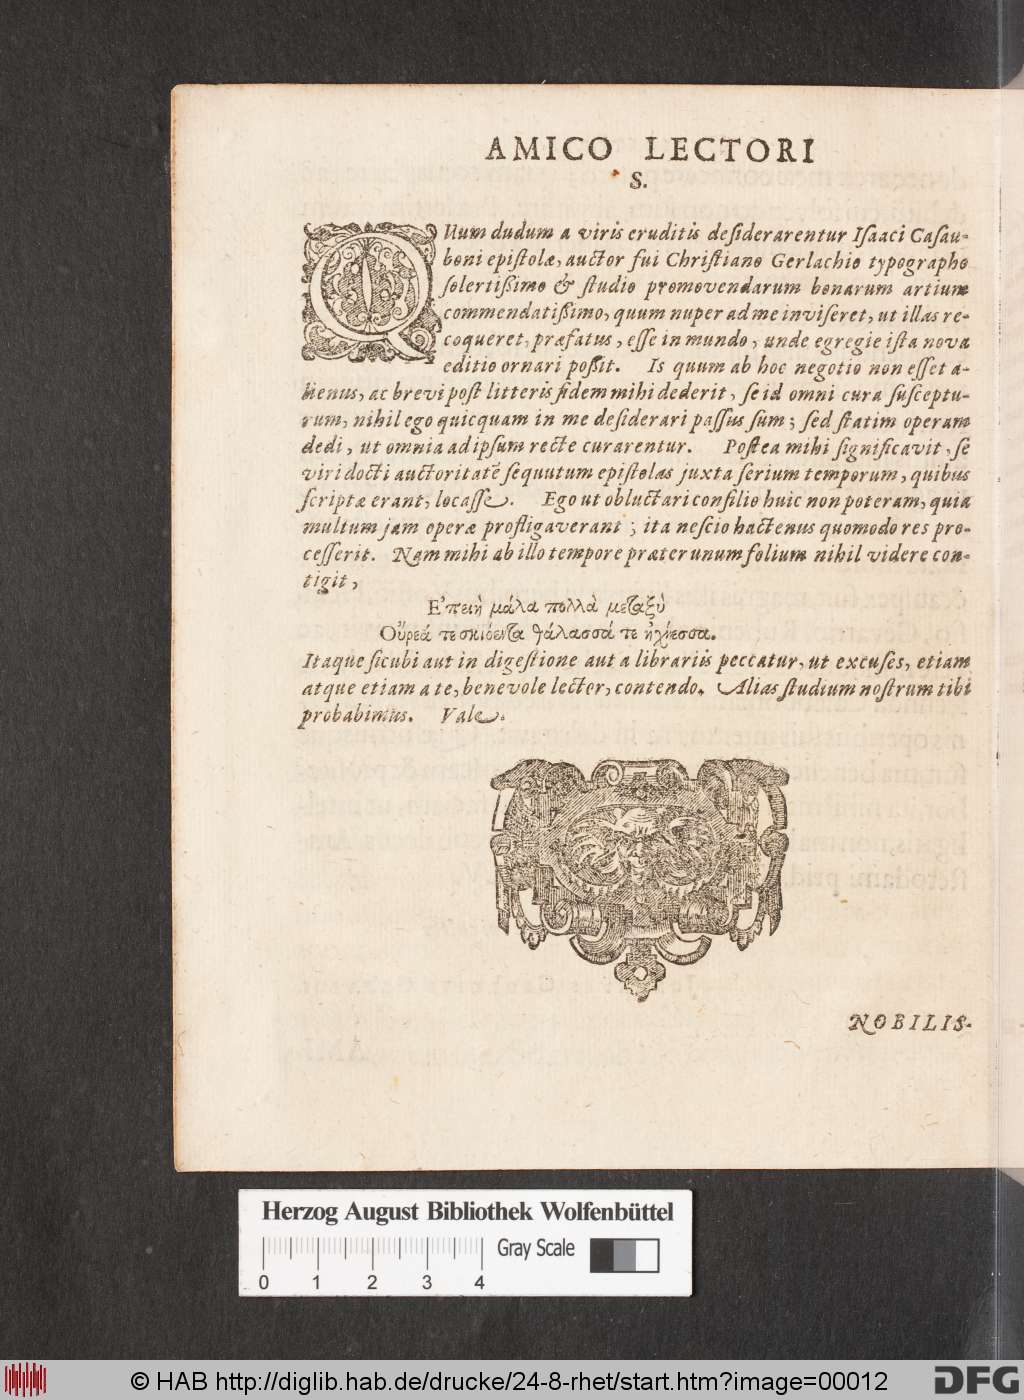 AMICO LECTORI
S.
QUum dudum a viris eruditis desiderarentur Isaaci Casau-
boni epistolæ, auctor fui Christiano Gerlachio typographo
solertißimo & studio promovendarum bonarum artium
commendatißimo, quum nuper ad me inviseret, ut illas re-
coqueret, præfatus, esse in mundo, unde egregie ista nova
editio ornari poßit. Is quum ab hoc negotio non esset a-
lienus, ac brevi post litteris fidem mihi dederit, se id omni cura susceptu-
rum, nihil ego quicquam in me desiderari passus sum; sed statim operam
dedi, ut omnia ad ipsum recte curarentur. Postea mihi significavit, se
viri docti auctoritatē sequutum epistolas juxta serium temporum, quibus
scriptæ erant, locasse. Ego ut obluctari consilio huic non poteram, quia
multum jam operæ profligaverant; ita nescio hactenus quomodo res pro-
cesserit. Nam mihi ab illo tempore præter unum folium nihil videre con-
tigit,
Ἐπειὴ μάλα πολλὰ μεταξὺ
Οὔρεά τε σκιόεντα θάλασσά τε ἠχήεσσα.
Itaque sicubi aut in digestione aut a librariis peccatur, ut excuses, etiam
atque etiam a te, benevole lector, contendo. Alias studium nostrum tibi
probabimus. Vale.
NOBILIS-
Herzog August Bibliothek Wolfenbüttel
Gray Scale
0 1 2 3 4
© HAB http://diglib.hab.de/drucke/24-8-rhet/start.htm?image=00012
DFG